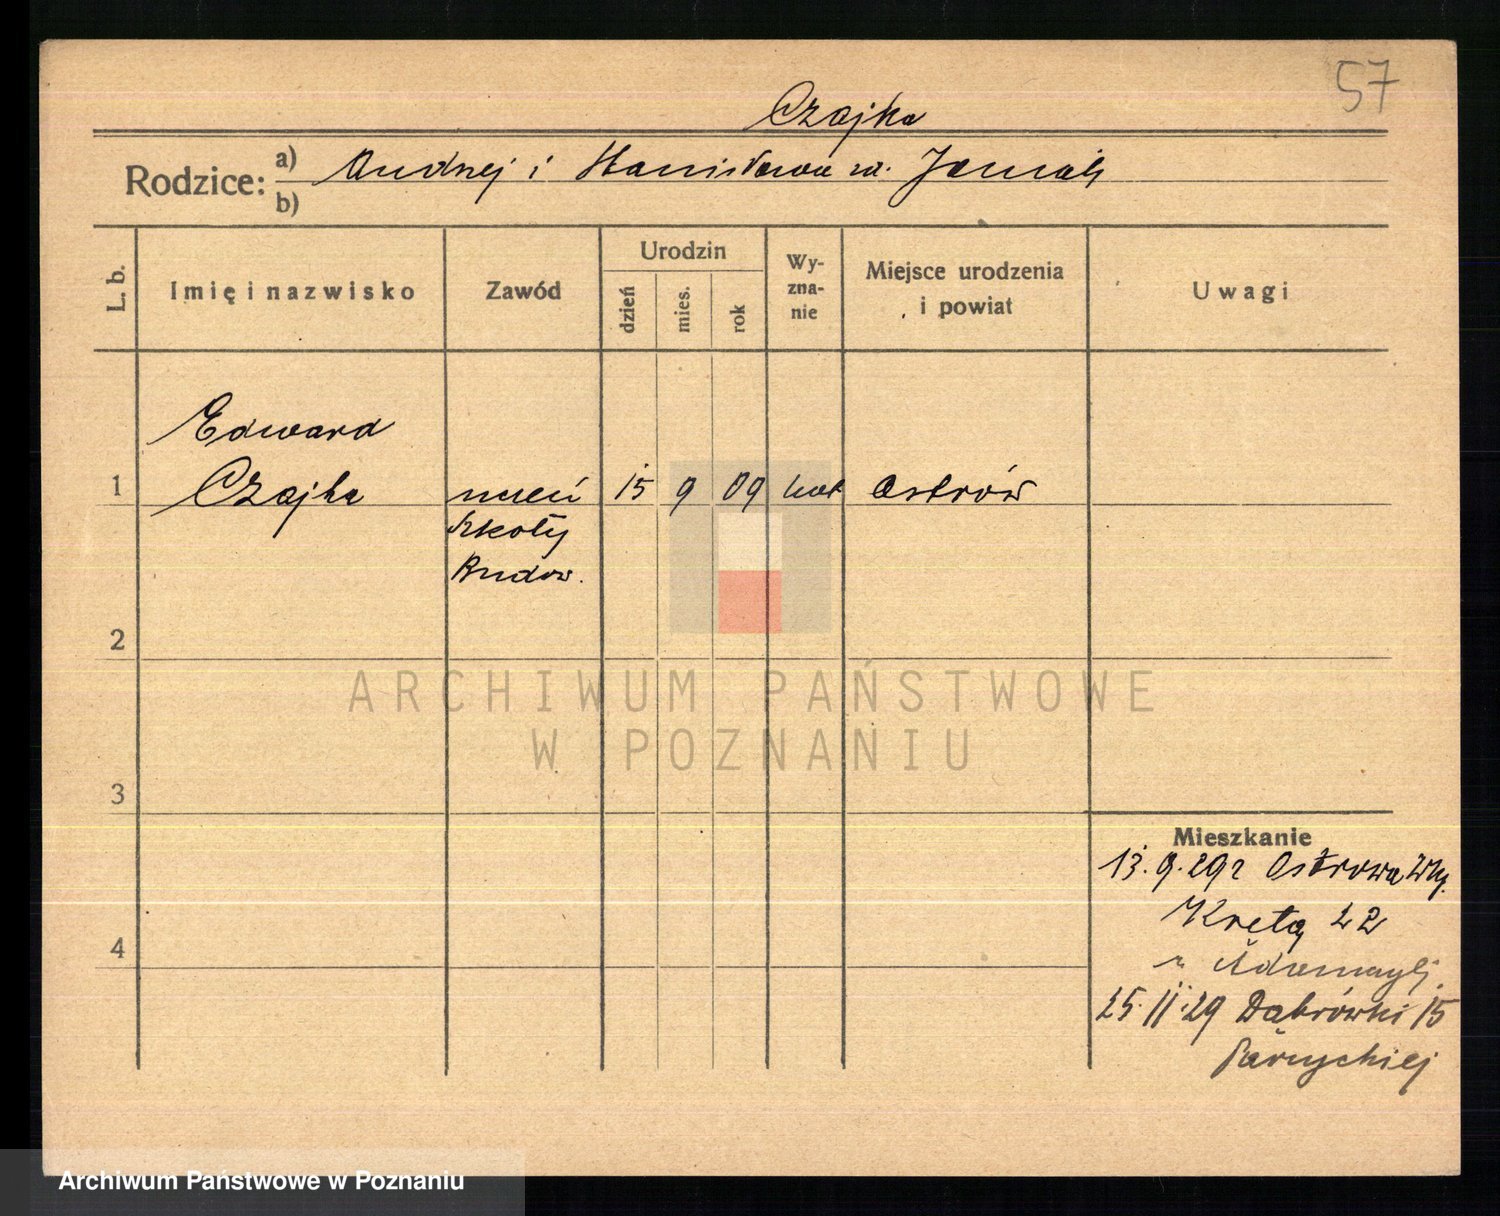 57
Czajka
Rodzice: a) Andrzej i Stanisława zd.
b)
L. b. Imię i nazwisko Zawód Urodzin dzień mies. rok Wyznanie Miejsce urodzenia i powiat Uwagi
Edward
1 Czajka uczeń 15 9 09 kat Ostrów
Szkoły
Budow.
2
ARCHIWUM PAŃSTWOWE
W POZNANIU
3
Mieszkanie
13.9.29r Ostrowa Wlkp.
Kręta 22
4
25.11.29 Dąbrówki 15
Archiwum Państwowe w Poznaniu